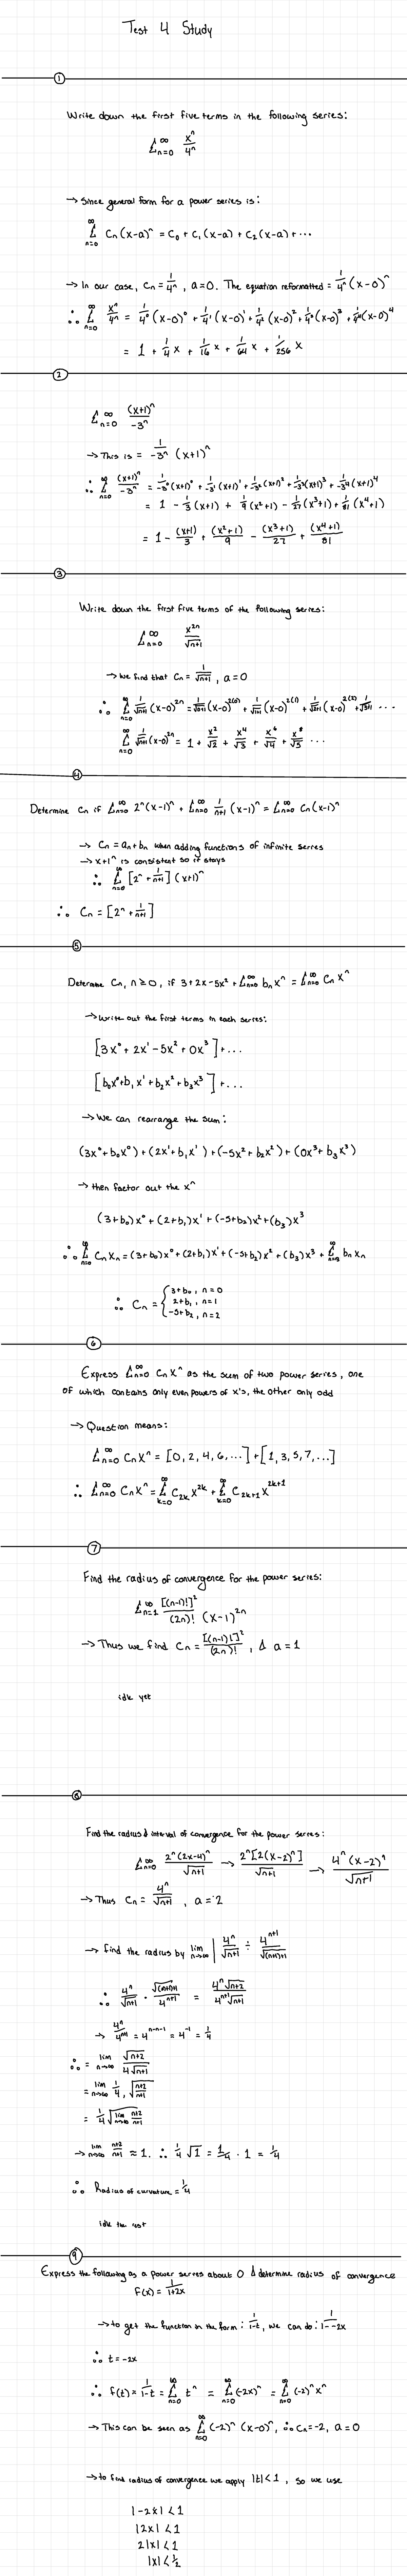 Test 4 Study
①
Write down the first five terms in the following series:
Σₙ₌₀^∞ xⁿ/4ⁿ
→ Since general form for a power series is:
Σₙ₌₀^∞ Cₙ(x-a)ⁿ = C₀ + C₁(x-a) + C₂(x-a) + ...
→ In our case, Cₙ = 1/4ⁿ, a=0. The equation reformatted = 1/4ⁿ (x-0)ⁿ
∴ Σₙ₌₀^∞ xⁿ/4ⁿ = 1/4⁰ (x-0)⁰ + 1/4¹ (x-0)¹ + 1/4² (x-0)² + 1/4³ (x-0)³ + 1/4⁴ (x-0)⁴
= 1 + 1/4 x + 1/16 x + 1/64 x + 1/256 x
②
Σₙ₌₀^∞ (x+1)ⁿ/-3ⁿ
→ This is = 1/-3ⁿ (x+1)ⁿ
∴ Σₙ₌₀^∞ (x+1)ⁿ/-3ⁿ = 1/-3⁰ (x+1)⁰ + 1/-3¹ (x+1)¹ + 1/-3² (x+1)² + 1/-3³ (x+1)³ + 1/-3⁴ (x+1)⁴
= 1 - 1/3 (x+1) + 1/9 (x²+1) - 1/27 (x³+1) + 1/81 (x⁴+1)
= 1 - (x+1)/3 + (x²+1)/9 - (x³+1)/27 + (x⁴+1)/81
③
Write down the first five terms of the following series:
Σₙ₌₀^∞ x²ⁿ/√n+1
→ We find that Cₙ = 1/√n+1, a=0
∴ Σₙ₌₀^∞ 1/√n+1 (x-0)²ⁿ = 1/√0+1 (x-0)²⁽⁰⁾ + 1/√1+1 (x-0)²⁽¹⁾ + 1/√2+1 (x-0)²⁽²⁾ + 1/√3+1 ...
Σₙ₌₀^∞ 1/√n+1 (x-0)²ⁿ = 1 + x²/√2 + x⁴/√3 + x⁶/√4 + x⁸/√5 ...
④
Determine Cₙ if Σₙ₌₀^∞ 2ⁿ(x-1)ⁿ + Σₙ₌₀^∞ 1/n+1 (x-1)ⁿ = Σₙ₌₀^∞ Cₙ(x-1)ⁿ
→ Cₙ = aₙ + bₙ when adding functions of infinite series
→ x+1ⁿ is consistent so it stays
∴ Σₙ₌₀^∞ [2ⁿ + 1/n+1] (x+1)ⁿ
∴ Cₙ = [2ⁿ + 1/n+1]
⑤
Determine Cₙ, n≥0, if 3+2x-5x² + Σₙ₌₀^∞ bₙxⁿ = Σₙ₌₀^∞ Cₙxⁿ
→ Write out the first terms in each series:
[3x⁰ + 2x¹ - 5x² + 0x³] + ...
[b₀x⁰ + b₁x¹ + b₂x² + b₃x³] + ...
→ We can rearrange the sum:
(3x⁰ + b₀x⁰) + (2x¹ + b₁x¹) + (-5x² + b₂x²) + (0x³ + b₃x³)
→ then factor out the xⁿ
(3+b₀)x⁰ + (2+b₁)x¹ + (-5+b₂)x² + (b₃)x³
∴ Σₙ₌₀^∞ Cₙxₙ = (3+b₀)x⁰ + (2+b₁)x¹ + (-5+b₂)x² + (b₃)x³ + Σₙ₌₃^∞ bₙxₙ
∴ Cₙ = { 3+b₀, n=0
2+b₁, n=1
-5+b₂, n=2
⑥
Express Σₙ₌₀^∞ Cₙxⁿ as the sum of two power series, one
of which contains only even powers of x's, the other only odd
→ Question means:
Σₙ₌₀^∞ Cₙxⁿ = [0, 2, 4, 6, ...] + [1, 3, 5, 7, ...]
∴ Σₙ₌₀^∞ Cₙxⁿ = Σₖ₌₀^∞ C₂ₖ x²ᵏ + Σₖ₌₀^∞ C₂ₖ₊₁ x²ᵏ⁺¹
⑦
Find the radius of convergence for the power series:
Σₙ₌₁^∞ [(n-1)!]²/(2n)! (x-1)²ⁿ
→ Thus we find Cₙ = [(n-1)!]²/(2n)!, & a=1
idk yet
⑧
Find the radius & interval of convergence for the power series:
Σₙ₌₀^∞ 2ⁿ(2x-4)ⁿ/√n+1 → 2ⁿ[2(x-2)ⁿ]/√n+1 → 4ⁿ(x-2)ⁿ/√n+1
→ Thus Cₙ = 4ⁿ/√n+1, a=2
→ find the radius by lim n→∞ | 4ⁿ/√n+1 ÷ 4ⁿ⁺¹/√(n+1)+1
∴ 4ⁿ/√n+1 · √(n+1)+1/4ⁿ⁺¹ = 4ⁿ√n+2/4ⁿ⁺¹√n+1
→ 4ⁿ/4ⁿ⁺¹ = 4ⁿ⁻ⁿ⁻¹ = 4⁻¹ = 1/4
∴ = lim n→∞ √n+2/4√n+1
= lim n→∞ 1/4 · √n+2/n+1
= 1/4 √lim n→∞ n+2/n+1
→ lim n→∞ n+2/n+1 ≈ 1. ∴ 1/4 √1 = 1/4 · 1 = 1/4
∴ Radius of curvature = 1/4
idk the rest
⑨
Express the following as a power series about 0 & determine radius of convergence
F(x) = 1/1+2x
→ to get the function in the form: 1/1-t, we can do: 1/1--2x
∴ t = -2x
∴ f(t) = 1/1-t = Σₙ₌₀^∞ tⁿ = Σₙ₌₀^∞ (-2x)ⁿ = Σₙ₌₀^∞ (-2)ⁿxⁿ
→ This can be seen as Σₙ₌₀^∞ (-2)ⁿ (x-0)ⁿ, ∴ Cₙ = -2, a=0
→ to find radius of convergence we apply |t|<1, so we use
|-2x| < 1
|2x| < 1
2|x| < 1
|x| < 1/2